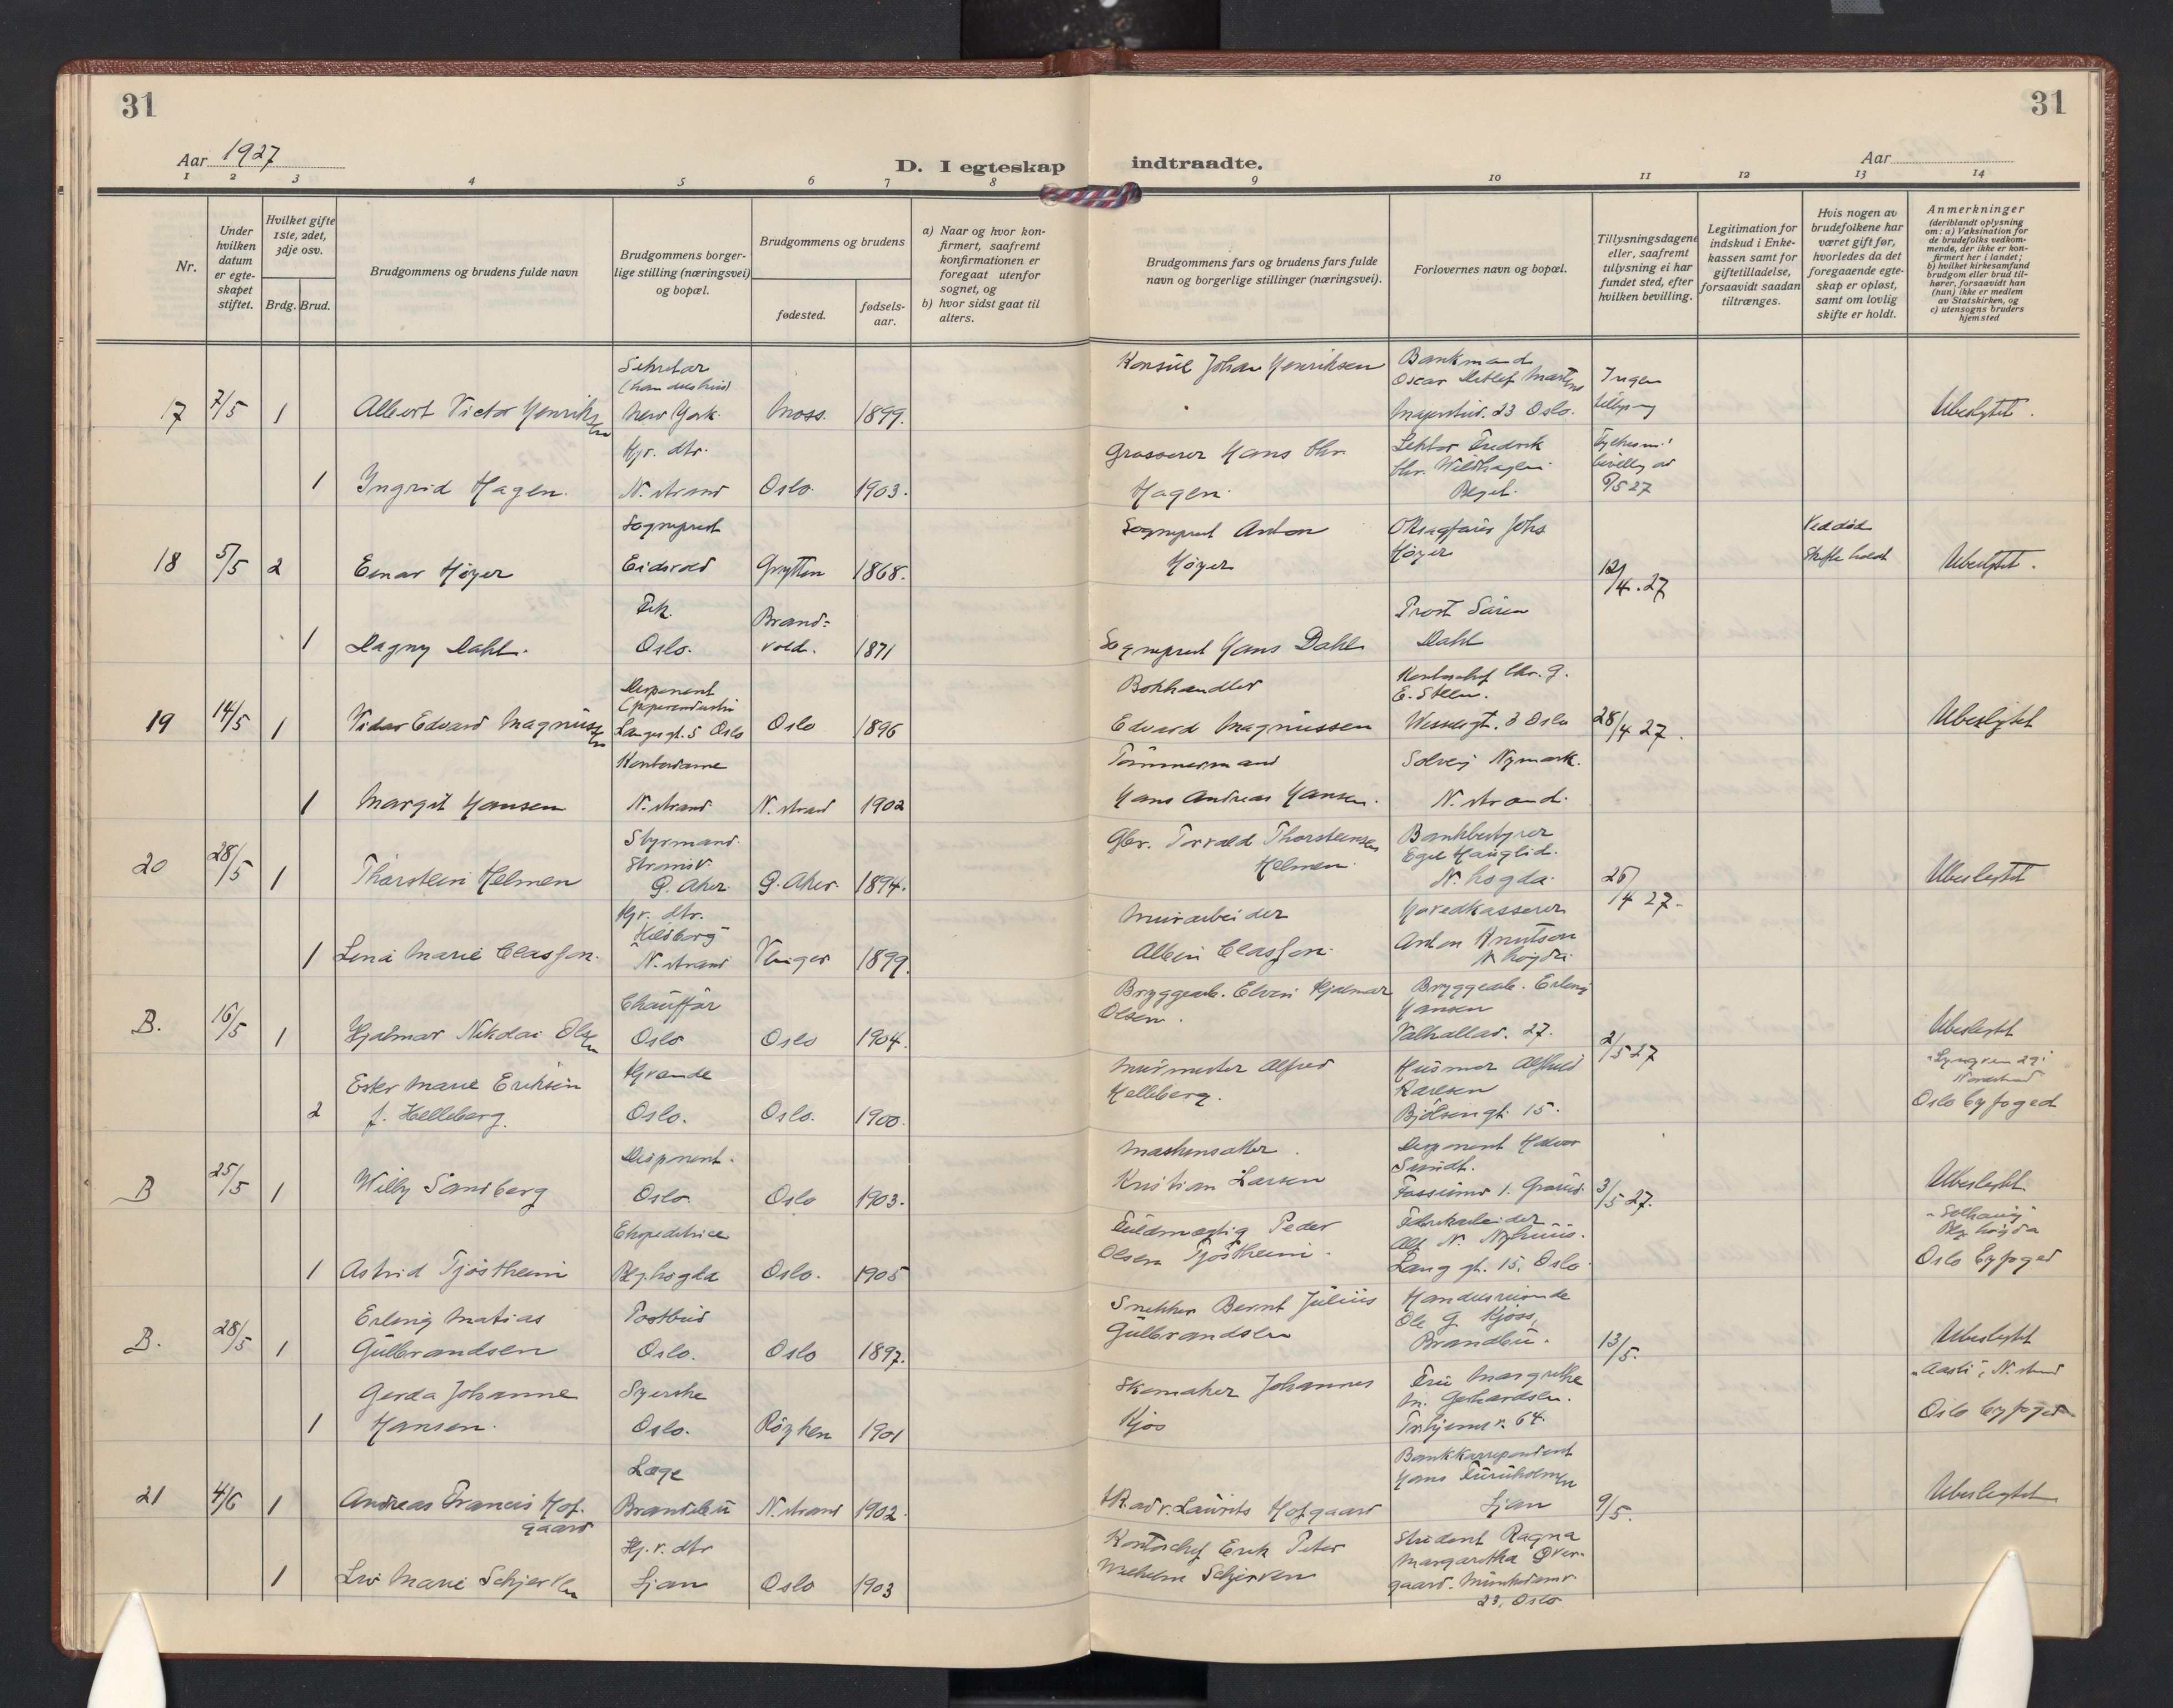 31
31
Aar 1927
D. I egteskap indtraadte.
Aar
1 2 3 4 5 6 7 8 9 10 11 12 13 14
Nr.
Under hvilken datum er egte-skapet stiftet.
Hvilket gifte 1ste, 2det, 3dje osv.
Brdg. Brud.
Brudgommens og brudens fulde navn
Brudgommens borger-lige stilling (næringsvei) og bopæl.
Brudgommens og brudens
fødested.
fødsels-aar.
a) Naar og hvor kon-firmert, saafremt konfirmationen er foregaat utenfor sognet, og
b) hvor sidst gaat til alters.
Brudgommens fars og brudens fars fulde navn og borgerlige stillinger (næringsvei).
Forlovernes navn og bopæl.
Tillysningsdagene eller, saafremt tillysning ei har fundet sted, efter hvilken bevilling.
Legitimation for indskud i Enke-kassen samt for giftetilladelse, forsaavidt saadan tiltrænges.
Hvis nogen av brudefolkene har været gift før, hvorledes da det foregaaende egte-skap er opløst, samt om lovlig skifte er holdt.
Anmerkninger
(deriblandt oplysning om: a) Vaksination for de brudefolks vedkom-mende, der ikke er kon-firmert her i landet; b) hvilket kirkesamfund brudgom eller brud til-hører, forsaavidt han (hun) ikke er medlem av Statskirken, og c) utensogns bruders hjemsted
17 7/5 1 Albert Victor Henriksen Sekretær New York. Moss. 1899. Konsul Johan Henriksen Bankmand Oscar Detlef Martens Majorstuv. 23 Oslo. Ingen Ubeslektet.
1 Ingrid Hagen. Hjv. dtr. N. strand Oslo. 1903. Grosserer Hans Chr. Hagen. Lektor Fredrik Chr. Wildhagen
18 5/5 2 Einar Høyer Sogneprest Eidsvold Grytten 1868. Sogneprest Anton Høyer O.R.sagfører Johs Høyer 12/4.27 Ved død Skifte holdt Ubeslektet.
1 Dagny Dahl. Frk. Oslo. Brand-vold. 1871 Sogneprest Hans Dahl Prost Sören Dahl
19 14/5 1 Vidar Edvard Magnussen Disponent Langes gt. 5 Oslo Oslo 1896 Bokhandler Edvard Magnussen Kontorchef Chr. G. E. Steen. Wesselsgt. 3 Oslo 28/4 27. Ubeslektet
1 Margit Hansen Kontordame N. strand N. strand 1902 Tömmermand Hans Andreas Hansen. Solveig Nymark. N. strand.
20 28/5 1 Thorstein Helmen Styrmand Strømsv. Ø. Aker. Ø. Aker. 1894. Gbr. Torvald Thorstensen Helmen. Bankbestyrer Egil Hauglid. N. högda. 26/4 27. Ubeslektet
1 Lina Marie Classon. Hjv. dtr. N. strand Vinger 1899. Murarbeider Albin Classon. Hovedkasserer Anton Knutson N. högda
B. 16/5 1 Hjalmar Nikolai Olsen Chauffør Oslo Oslo 1904. Bryggearb. Hjalmar Olsen. Bryggearb. Erling Hansen Valhallav. 27. 2/5 27 Ubeslektet
2 Ester Marie Eriksen f. Helleberg. Hjv. Oslo. Oslo. 1900. Murmester Alfred Helleberg. Karlsen Bjölsengt. 15. Nordstrand Oslo byfoged
B 25/5 1 Willy Sandberg Disponent. Oslo. Oslo 1903. Maskinsætter Kristian Larsen Disponent Halvor Sundt. 3/5 27. Ubeslektet.
1 Astrid Tjöstheim Ekspeditrice Bl.högda Oslo. 1905 Fuldmægtig Peder Olsen Tjöstheim. Fabrikarbeider Alf N. Nyhuus. Lang gt. 15, Oslo "Solhaug" Oslo byfoged
B. 28/5 1 Erling Matias Gulbrandsen Postbud Oslo. Oslo 1897. Snekker Bernt Julius Gulbrandsen Handelsreisende Ole G. Kjoss, Brandbu. 13/5. Ubeslektet
1 Gerda Johanne Hansen. Syerske Oslo. Röyken 1901 Skomaker Johannes Kjos Fru Margrethe M. Gerhardsen. 64. N. strand Oslo byfoged
21 4/6 1 Andreas Francis Hofgaard Læge Brandbu N. strand 1902. H.R.adv. Laurits Hofgaard Bankkorrespondent Hans Furuholmen Ljan 9/5. Ubeslektet
1 Marie Schjerven Hj.v. dtr Ljan Oslo 1903 Kontorchef Erik Peter Wilhelm Schjerven Student Ragna Margaretha Övergaard. Munkedamsv. 23, Oslo